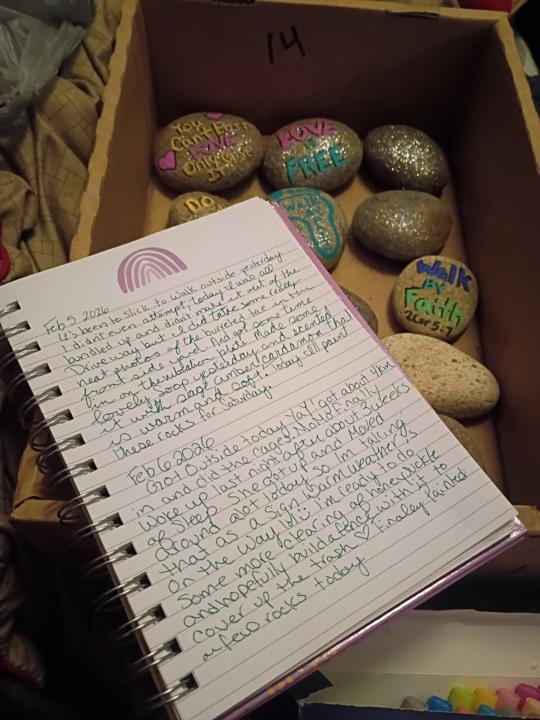 14
You
Can't Earn
LOVE
Only Give
It
LOVE
is
FREE
DO
Walk
By
Faith
2Cor 5:7
Feb 5 2026
It's been to slick to walk outside yesterday
I didn't even attempt, today I was all
bundled up and didn't make it out of the
Driveway but I did take some really
neat photos of the buried line in the
front side yard. And got some time
in on the vibration plate. Made some
lovely soap yesterday and scented
it with sage umber cardamom that
is warm and soft. Today I'll paint
these rocks for Saturday.
Feb 6 2026
Got Outside today YAY! got about 4km
in and did the cages. MoMoT finally
woke up last night after about 3 weeks
of sleep. She got up and moved
around alot today so I'm taking
that as a sign warm weather is
on the way lol! I'm ready to do
some more clearing of honeysuckle
and hopefully build a fence with it to
cover up the trash ♡ Finaley painted
a few rocks today